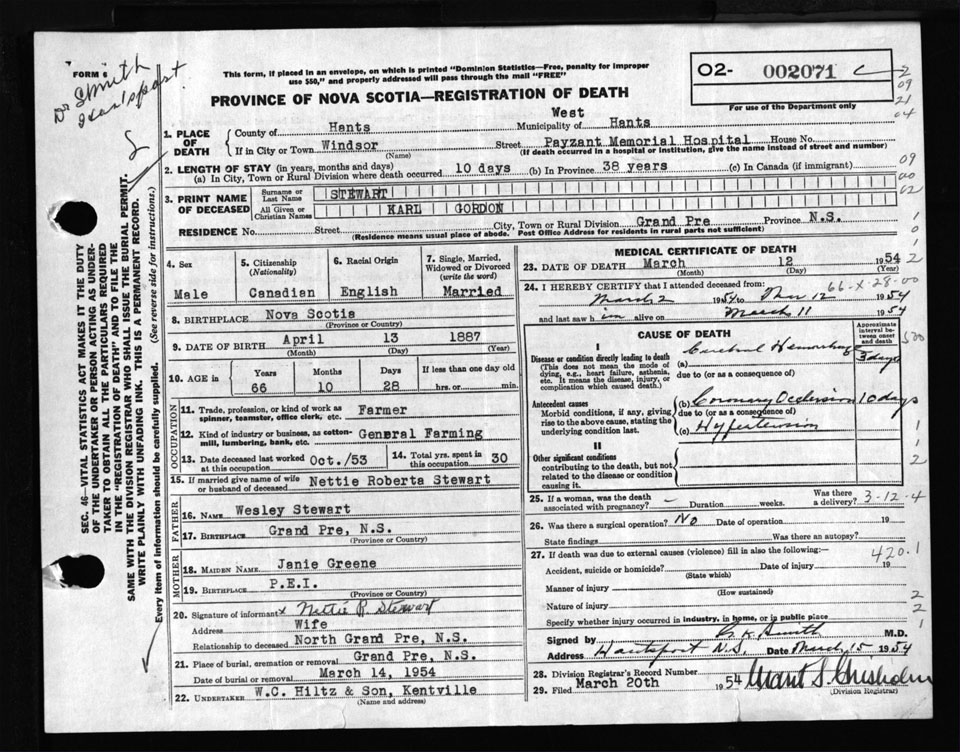 FORM 6
Dr Smith
Hantsport
This form, if placed in an envelope, on which is printed "Dominion Statistics—Free, penalty for improper
use $50," and properly addressed will pass through the mail "FREE"
PROVINCE OF NOVA SCOTIA—REGISTRATION OF DEATH
O2- 002071
For use of the Department only
09
21
04
1. PLACE OF DEATH
County of Hants
Municipality of West Hants
If in City or Town Windsor
(Name)
Street Payzant Memorial Hospital House No.
(If death occurred in a hospital or institution, give the name instead of street and number)
2. LENGTH OF STAY (in years, months and days)
(a) In City, Town or Rural Division where death occurred 10 days (b) In Province 38 years (c) In Canada (if immigrant)
09
00
02
3. PRINT NAME OF DECEASED
Surname or Last Name STEWART
All Given or Christian Names KARL GORDON
RESIDENCE No. Street City, Town or Rural Division Grand Pre Province N.S.
(Residence means usual place of abode. Post Office Address for residents in rural parts not sufficient)
4. Sex
Male
5. Citizenship
(Nationality)
Canadian
6. Racial Origin
English
7. Single, Married, Widowed or Divorced
(write the word)
Married
8. BIRTHPLACE Nova Scotia
(Province or Country)
9. DATE OF BIRTH April 13 1887
(Month) (Day) (Year)
10. AGE in
Years Months Days If less than one day old
66 10 28 hrs. or min.
OCCUPATION
11. Trade, profession, or kind of work as spinner, teamster, office clerk, etc. Farmer
12. Kind of industry or business, as cotton-mill, lumbering, bank, etc. General Farming
13. Date deceased last worked at this occupation Oct./53
14. Total yrs. spent in this occupation 30
15. If married give name of wife or husband of deceased Nettie Roberta Stewart
FATHER
16. NAME Wesley Stewart
17. BIRTHPLACE Grand Pre, N.S.
(Province or Country)
MOTHER
18. MAIDEN NAME Janie Greene
19. BIRTHPLACE P.E.I.
(Province or Country)
20. Signature of informant x Nettie R Stewart
Address Wife
Relationship to deceased North Grand Pre, N.S.
21. Place of burial, cremation or removal Grand Pre, N.S.
Date of burial or removal March 14, 1954
22. UNDERTAKER W.C. Hiltz & Son, Kentville
(Name and address)
MEDICAL CERTIFICATE OF DEATH
23. DATE OF DEATH March 12 1954
(Month) (Day) (Year)
24. I HEREBY CERTIFY that I attended deceased from:
66-X-28-00
March 2 1954 to Mar 12 1954
and last saw him alive on March 11 1954
CAUSE OF DEATH
Approximate interval between onset and death
I
Disease or condition directly leading to death
(This does not mean the mode of dying, e.g., heart failure, asthenia, etc. It means the disease, injury, or complication which caused death.)
(a) Cerebral Hemorrhage 3 days
due to (or as a consequence of)
Antecedent causes
Morbid conditions, if any, giving rise to the above cause, stating the underlying condition last.
(b) Coronary Occlusion 10 days
due to (or as a consequence of)
(c) Hypertension
II
Other significant conditions
contributing to the death, but not related to the disease or condition causing it.
25. If a woman, was the death associated with pregnancy? – Duration weeks. Was there a delivery?
3-12-4
26. Was there a surgical operation? No Date of operation 19
State findings Was there an autopsy?
27. If death was due to external causes (violence) fill in also the following:
420.1
Accident, suicide or homicide? Date of injury 19
(State which)
Manner of injury
(How sustained)
Nature of injury
Specify whether injury occurred in industry, in home, or in public place
Signed by B. K. Smith M.D.
Address Hantsport N.S. Date March 15 1954
28. Division Registrar's Record Number
29. Filed March 20th 1954 Grant S. Chisholm
(Division Registrar)
SEC. 46—VITAL STATISTICS ACT MAKES IT THE DUTY
OF THE UNDERTAKER OR PERSON ACTING AS UNDER-
TAKER TO OBTAIN ALL THE PARTICULARS REQUIRED
IN THE "REGISTRATION OF DEATH" AND TO FILE THE
SAME WITH THE DIVISION REGISTRAR WHO SHALL ISSUE THE BURIAL PERMIT.
WRITE PLAINLY WITH UNFADING INK. THIS IS A PERMANENT RECORD.
Every item of information should be carefully supplied. (See reverse side for instructions.)